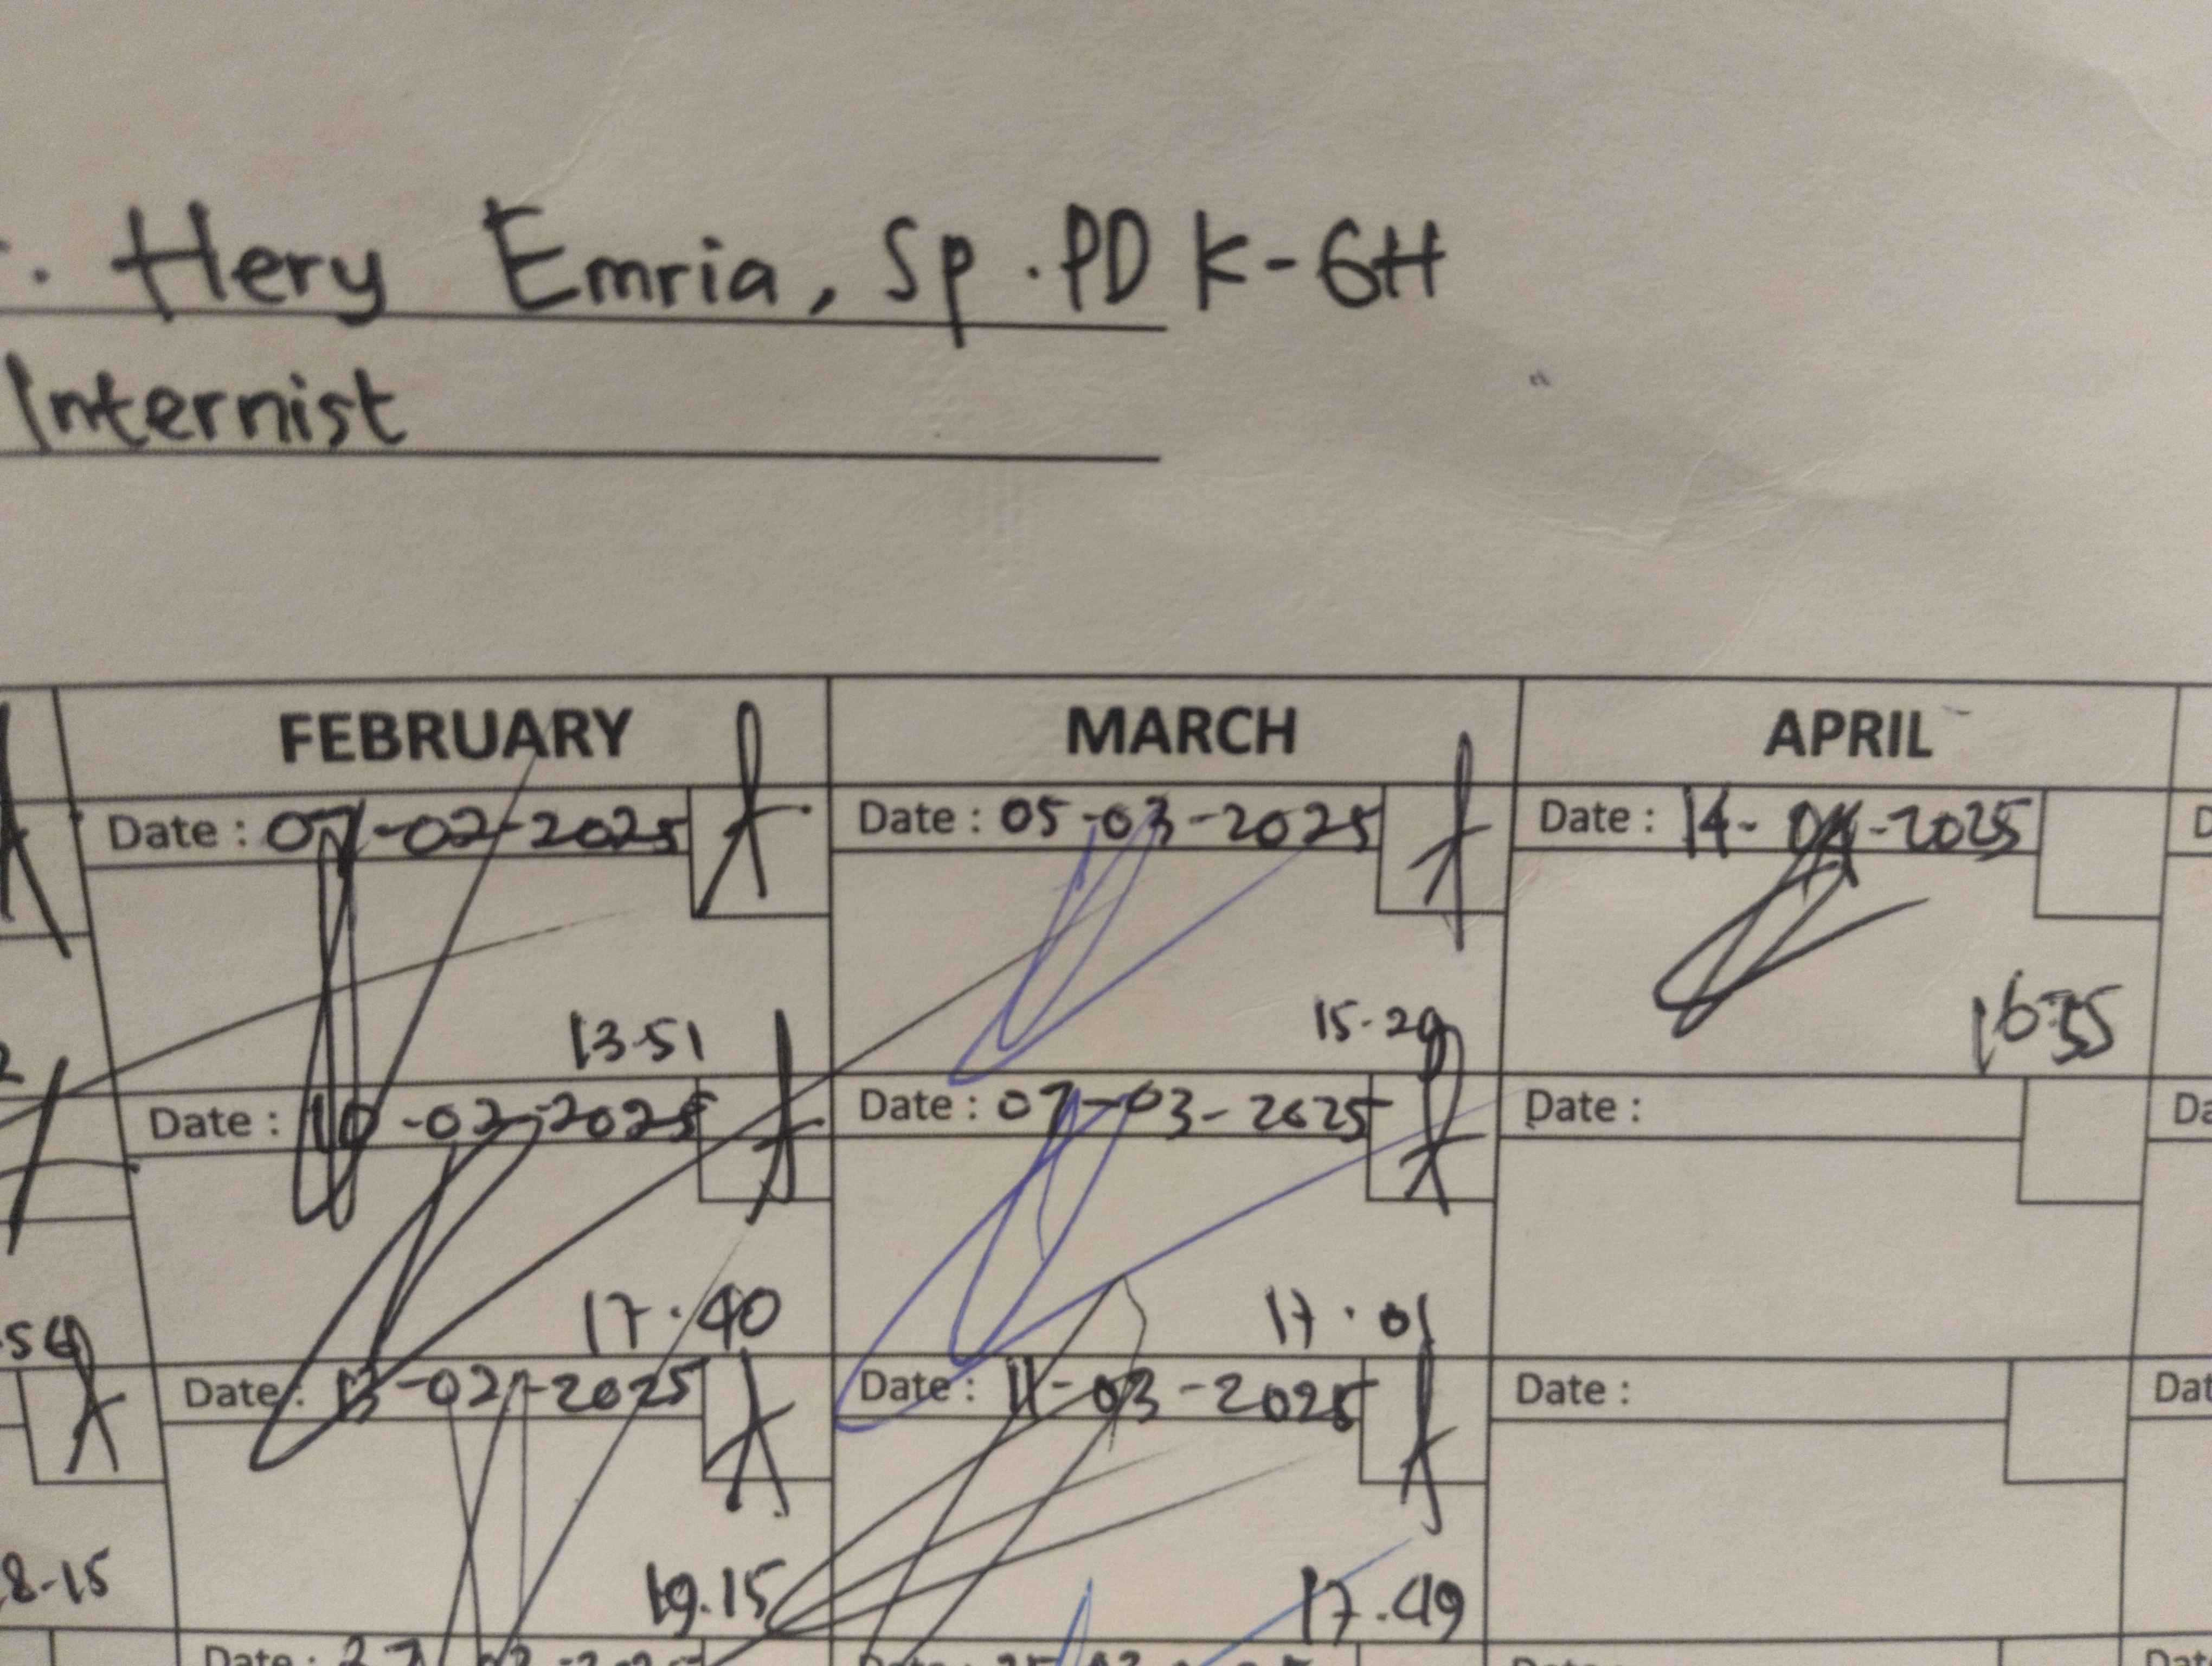 . Hery Emria, Sp.PD K-GH
Internist
FEBRUARY MARCH APRIL
Date : 07-02-2025 Date : 05-03-2025 Date : 14-04-2025
13.51 15.29 16.35
Date : 10-02-2025 Date : 07-03-2025 Date :
17.40 17.01
Date : 13-02-2025 Date : 11-03-2025 Date :
8-15 19.15 17.49
Date :